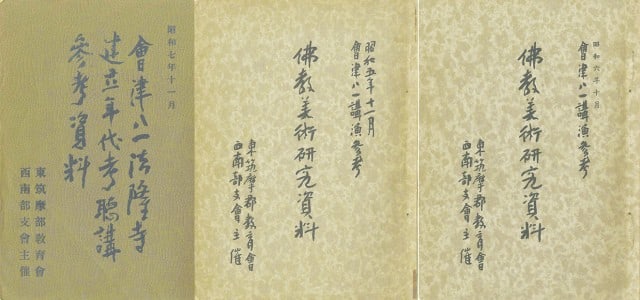 昭和七年十一月
會津八一法隆寺
建立年代考聽講
參考資料
東筑摩部敎育會
西南部支會主催
昭和五年十一月
會津八一講演參考
佛教美術研究資料
東筑摩郡教育會
西南部支會主催
昭和六年十月
會津八一講演參考
佛教美術研究資料
東筑摩郡教育會
西南部支會主催